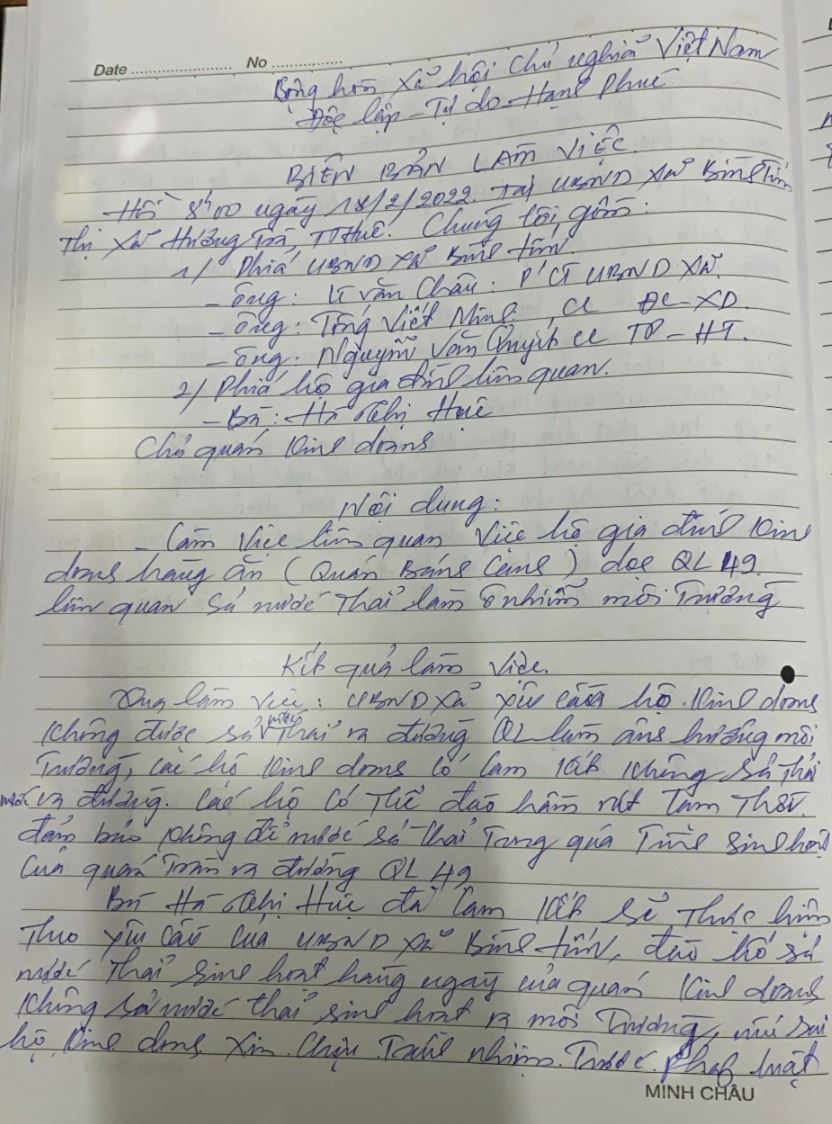 Date No
Cộng hòa Xã hội Chủ nghĩa Việt Nam
Độc lập - Tự do - Hạnh Phúc
BIÊN BẢN LÀM VIỆC.
Hồi 8h00 ngày 18/2/2022. Tại UBND xã Bình Tiến
Thị xã Hương Trà, TTHuế. Chúng tôi, gồm:
1/ Phía UBND xã Bình Tiến
- Ông: Lê Văn Châu: P.CT UBND xã.
- Ông: Tống Viết Minh, CC ĐC-XD.
- Ông: Nguyễn Văn CC TP-HT.
2/ Phía hộ gia đình liên quan.
- Bà: Hà Thị Huệ
Chủ quán kinh doanh
Nội dung:
- Làm việc liên quan việc hộ gia đình kinh
doanh hàng ăn (Quán Bánh Canh) dọc QL 49.
liên quan xả nước thải làm ô nhiễm môi trường
Kết quả làm việc.
làm việc: UBND xã yêu cầu hộ kinh doanh
không được xả nước thải ra đường QL làm ảnh hưởng môi
trường, các hộ kinh doanh có cam kết không xả thải
nước ra đường. Các hộ có thể đào hầm rút tạm thời.
đảm bảo không để nước xả thải trong quá trình sinh hoạt
của quán tràn ra đường QL 49
Bà Hà Thị Huệ đã cam kết sẽ thực hiện
theo yêu cầu của UBND xã Bình Tiến, đào hố xả
nước thải sinh hoạt hàng ngày của quán kinh doanh
không xả nước thải sinh hoạt ra môi trường, nếu sai
hộ kinh doanh xin chịu trách nhiệm trước pháp luật
MINH CHÂU